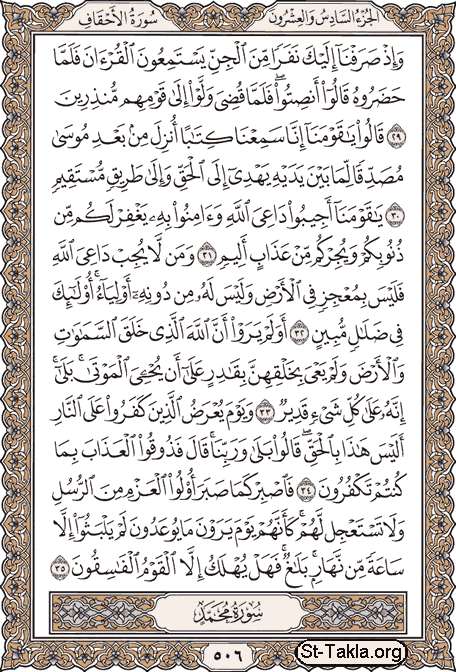 سُورَةُ الأَحْقَافِ الجُزْءُ السَّادِسُ وَالعِشْرُونَ
وَإِذْ صَرَفْنَآ إِلَيْكَ نَفَرًا مِّنَ ٱلْجِنِّ يَسْتَمِعُونَ ٱلْقُرْءَانَ فَلَمَّا
حَضَرُوهُ قَالُوٓا۟ أَنصِتُوا۟ ۖ فَلَمَّا قُضِىَ وَلَّوْا۟ إِلَىٰ قَوْمِهِم مُّنذِرِينَ
٢٩ قَالُوا۟ يَٰقَوْمَنَآ إِنَّا سَمِعْنَا كِتَٰبًا أُنزِلَ مِنۢ بَعْدِ مُوسَىٰ
مُصَدِّقًا لِّمَا بَيْنَ يَدَيْهِ يَهْدِىٓ إِلَى ٱلْحَقِّ وَإِلَىٰ طَرِيقٍ مُّسْتَقِيمٍ
٣٠ يَٰقَوْمَنَآ أَجِيبُوا۟ دَاعِىَ ٱللَّهِ وَءَامِنُوا۟ بِهِۦ يَغْفِرْ لَكُم مِّن
ذُنُوبِكُمْ وَيُجِرْكُم مِّنْ عَذَابٍ أَلِيمٍ ٣١ وَمَن لَّا يُجِبْ دَاعِىَ ٱللَّهِ
فَلَيْسَ بِمُعْجِزٍ فِى ٱلْأَرْضِ وَلَيْسَ لَهُۥ مِن دُونِهِۦٓ أَوْلِيَآءُ ۚ أُو۟لَٰٓئِكَ
فِى ضَلَٰلٍ مُّبِينٍ ٣٢ أَوَلَمْ يَرَوْا۟ أَنَّ ٱللَّهَ ٱلَّذِى خَلَقَ ٱلسَّمَٰوَٰتِ
وَٱلْأَرْضَ وَلَمْ يَعْىَ بِخَلْقِهِنَّ بِقَٰدِرٍ عَلَىٰٓ أَن يُحْـِۧىَ ٱلْمَوْتَىٰ ۚ بَلَىٰٓ
إِنَّهُۥ عَلَىٰ كُلِّ شَىْءٍ قَدِيرٌ ٣٣ وَيَوْمَ يُعْرَضُ ٱلَّذِينَ كَفَرُوا۟ عَلَى ٱلنَّارِ
أَلَيْسَ هَٰذَا بِٱلْحَقِّ ۖ قَالُوا۟ بَلَىٰ وَرَبِّنَا ۚ قَالَ فَذُوقُوا۟ ٱلْعَذَابَ بِمَا
كُنتُمْ تَكْفُرُونَ ٣٤ فَٱصْبِرْ كَمَا صَبَرَ أُو۟لُوا۟ ٱلْعَزْمِ مِنَ ٱلرُّسُلِ
وَلَا تَسْتَعْجِل لَّهُمْ ۚ كَأَنَّهُمْ يَوْمَ يَرَوْنَ مَا يُوعَدُونَ لَمْ يَلْبَثُوٓا۟ إِلَّا
سَاعَةً مِّن نَّهَارٍۭ ۚ بَلَٰغٌ ۚ فَهَلْ يُهْلَكُ إِلَّا ٱلْقَوْمُ ٱلْفَٰسِقُونَ ٣٥
سُورَةُ مُحَمَّدٍ
٥٠٦
St-Takla.org